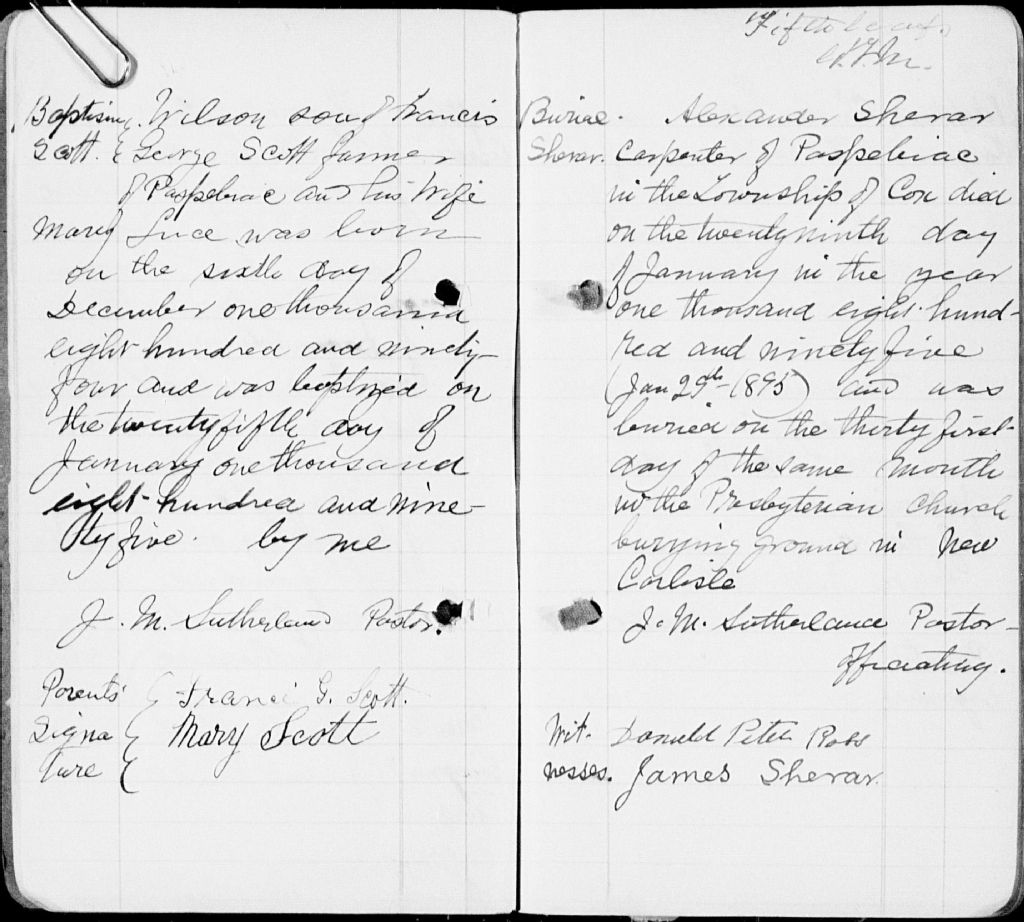 Baptism Wilson son of Francis
Scott. George Scott farmer
of Paspebiac and his wife
Mary Luce was born
on the sixth day of
December one thousand
eight hundred and ninety-
four and was baptized on
the twenty fifth day of
January one thousand
eight hundred and nine-
ty five. by me
J. M. Sutherland Pastor.
Parents' Franci G. Scott.
Signa Mary Scott
ture
Fifth leaf.
Burial. Alexander Sherar
Sherar. Carpenter of Paspebiac
in the Township of Cox died
on the twenty ninth day
of January in the year
one thousand eight hund-
red and ninety five
(Jan 29th 1895) and was
buried on the thirty first
day of the same month
in the Presbyterian Church
burying ground in New
Carlisle
J. M. Sutherland Pastor
officiating.
Wit- Donald Peter Ross
nesses. James Sherar.